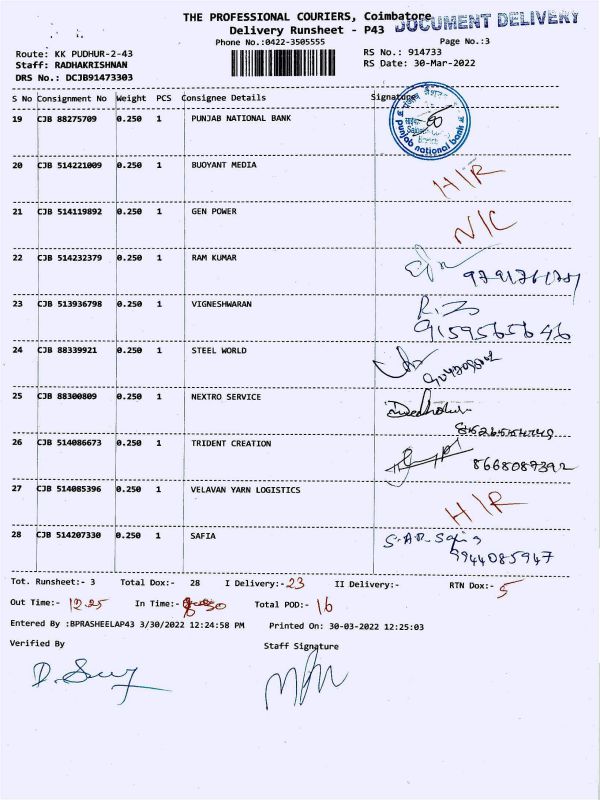 THE PROFESSIONAL COURIERS, Coimbatore
DOCUMENT DELIVERY
Delivery Runsheet - P43
Phone No.:0422-3505555
Page No.:3
Route: KK PUDHUR-2-43
RS No.: 914733
Staff: RADHAKRISHNAN
RS Date: 30-Mar-2022
DRS No.: DCJB91473303
S No Consignment No Weight PCS Consignee Details Signature
19 CJB 88275709 0.250 1 PUNJAB NATIONAL BANK
punjab national bank
20 CJB 514221009 0.250 1 BUOYANT MEDIA H/R
21 CJB 514119892 0.250 1 GEN POWER N/C
22 CJB 514232379 0.250 1 RAM KUMAR
23 CJB 513936798 0.250 1 VIGNESHWARAN
9159565646
24 CJB 88339921 0.250 1 STEEL WORLD
25 CJB 88300809 0.250 1 NEXTRO SERVICE
26 CJB 514086673 0.250 1 TRIDENT CREATION
8668087392
27 CJB 514085396 0.250 1 VELAVAN YARN LOGISTICS H/R
28 CJB 514207330 0.250 1 SAFIA
9944085947
Tot. Runsheet:- 3 Total Dox:- 28 I Delivery:- 23 II Delivery:- RTN Dox:- 5
Out Time:- 12.25 In Time:- Total POD:- 16
Entered By :BPRASHEELAP43 3/30/2022 12:24:58 PM Printed On: 30-03-2022 12:25:03
Verified By
Staff Signature